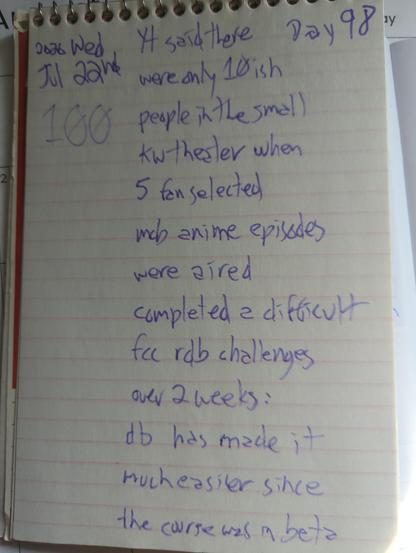 2026 Wed
Jul 22nd
100
Day 98
Yt said there
were only 10ish
people in the small
kw theater when
5 fan selected
mcb anime episodes
were aired
completed a difficult
fcc rdb challenges
over 2 weeks:
db has made it
much easier since
the course was in beta
ay
2